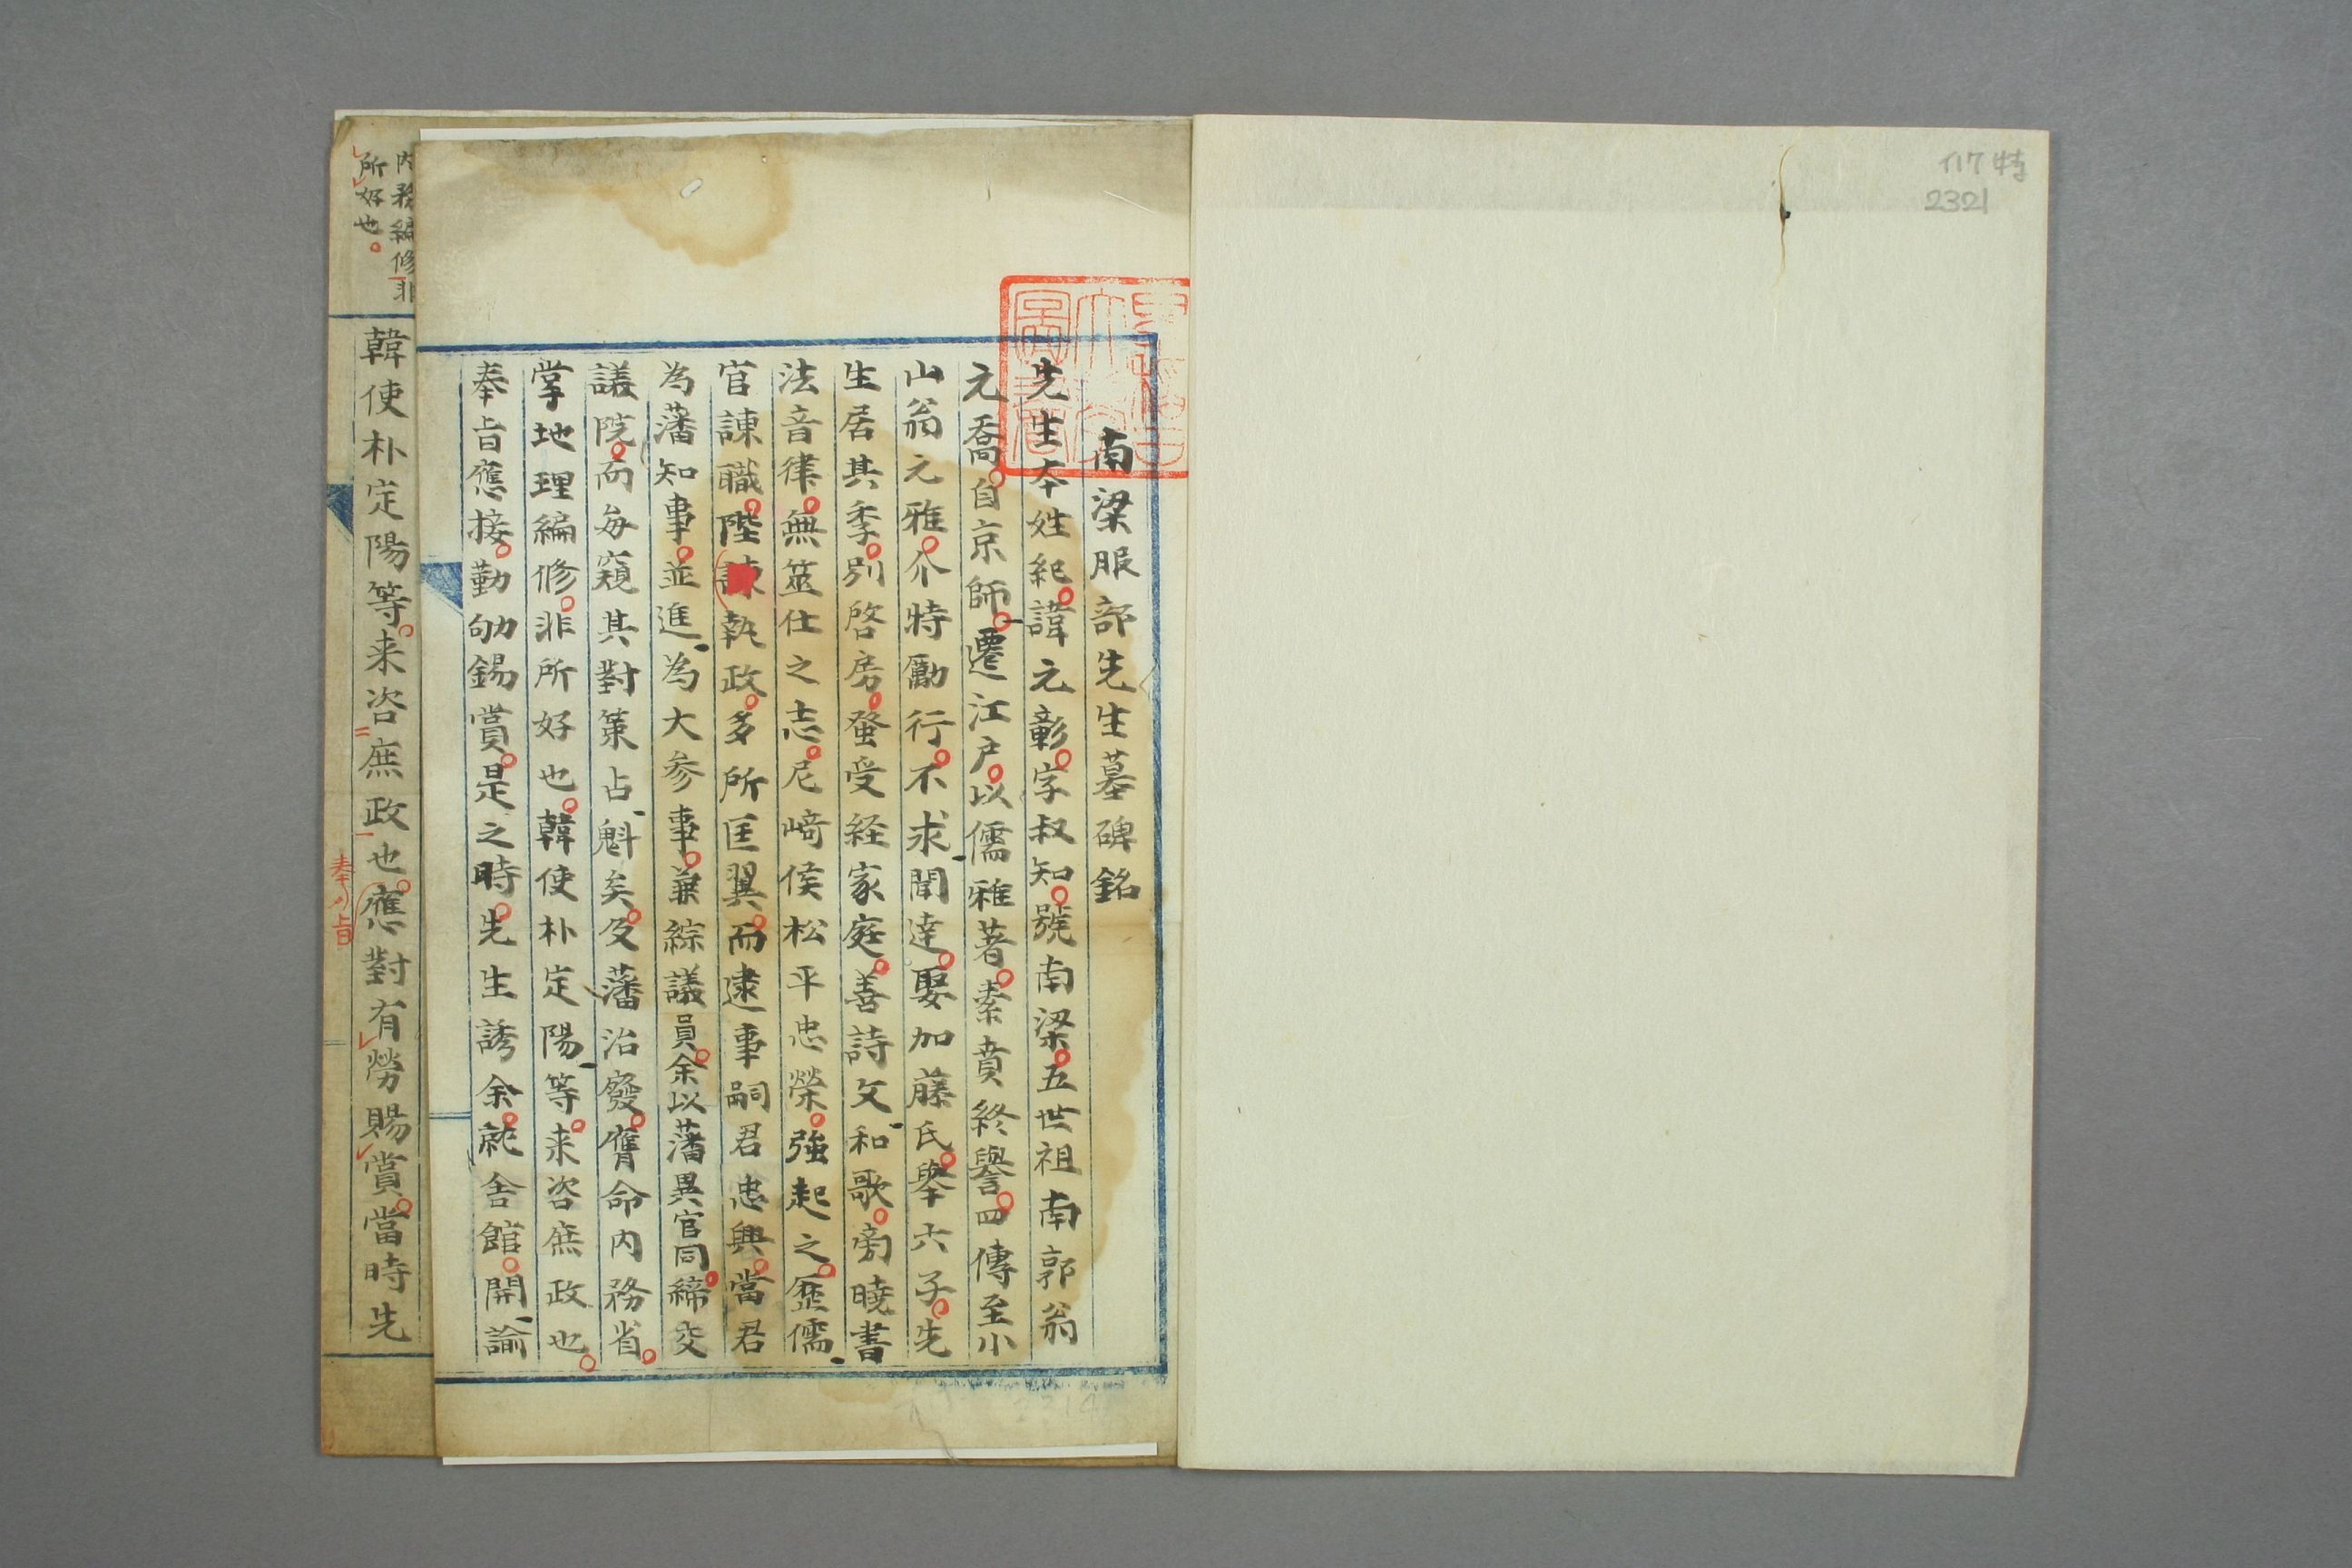 イ17 特
2321
南梁服部先生墓碑銘
先生本姓紀諱元彰字叔知號南梁五世祖南郭翁
元喬自京師遷江戸以儒雅著素賁終譽四傳至小
山翁元雅介特勵行不求聞達娶加藤氏舉六子先
生居其季別啓房蚤受経家庭善詩文和歌旁曉書
法音律無筮仕之志尼﨑侯松平忠榮強起之歷儒
官諫職陞執政多所匡翼而逮事嗣君忠興當君
為藩知事並進為大参事兼綜議員余以藩異官同締交
議院而每窺其對策占魁矣及藩治廢膺命内務省
掌地理編修非所好也韓使朴定陽等来咨庶政也
奉旨應接勤劬錫賞是之時先生誘余就舎館開諭
内務編修非
所好也
韓使朴定陽等来咨庶政也應對有勞賜賞當時先
奉旨